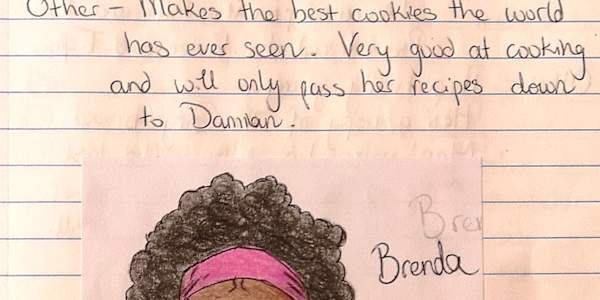 Other - Makes the best cookies the world
has ever seen. Very good at cooking
and will only pass her recipes down
to Damian.
Bren
Brenda